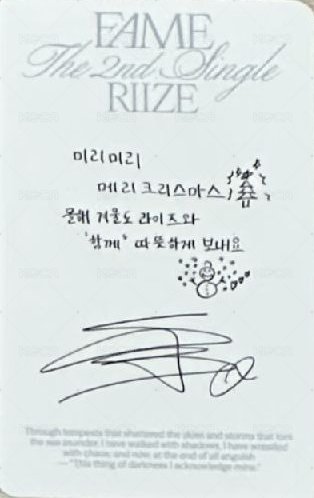 FAME
The 2nd Single
RIIZE
미리미리
메리크리스마스!
올해 겨울도 라이즈와
"함께" 따뜻하게 보내요
Through tempests that shattered the skies and storms that tore
the sea asunder, I have walked with shadows, I have wrestled
with chaos, and now, at the end of all anguish
— "This thing of darkness I acknowledge mine."